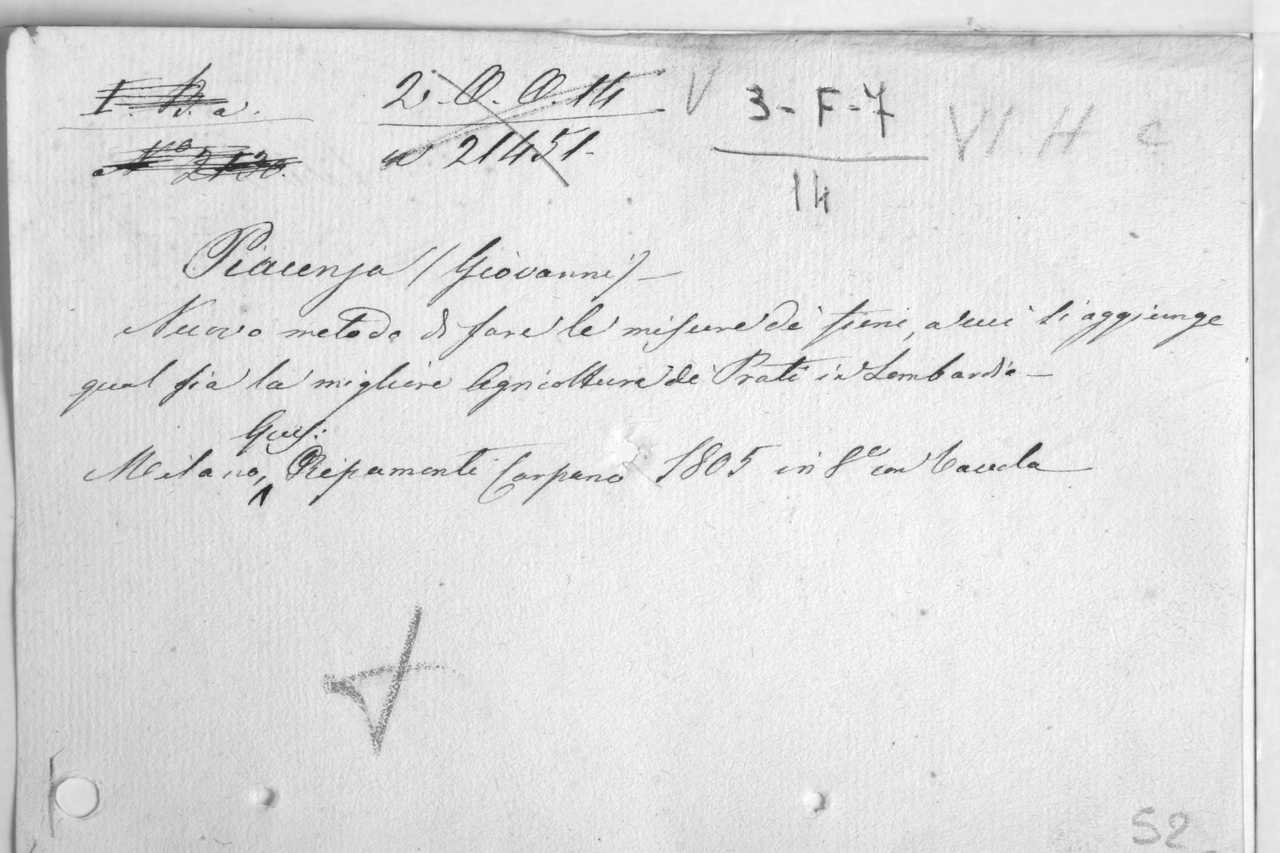 I. B. a. 2. O. O. 14 V 3-F-7 VI H c
N.o 2130. n. 21451. 14
Piacenza (Giovanni) —
Nuovo metodo di fare le misure de' fieni, a cui si aggiunge
qual sia la migliore Agricoltura de' Prati in Lombardia —
Gius:
Milano, Ripamonti Carpano 1805 in 8.o con tavola
52